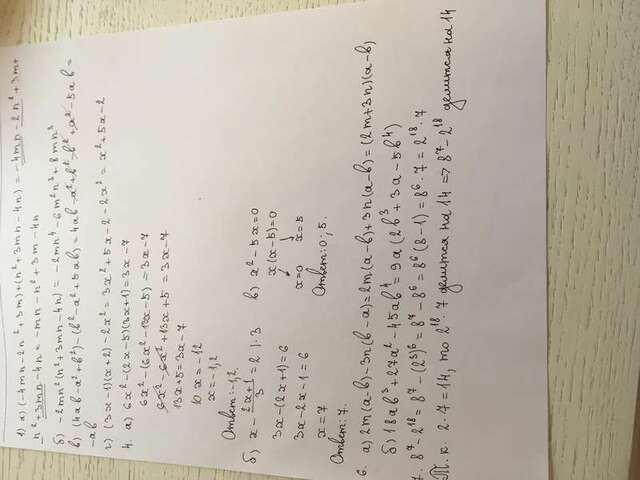 1) а) (-4mn-2n²+3m)+(n²+3mn-4n) = -4mn-2n²+3m+
n²+3mn-4n = -mn-n²+3m-4n
б) -2mn²(n²+3mn-4n) = -2mn⁴-6m²n³+8mn³
в) (4ab-a²+b²)-(b²-a²+5ab) = 4ab-a²+b²-b²+a²-5ab =
-ab
г) (3x-1)(x+2)-2x² = 3x²+5x-2-2x² = x²+5x-2
4. а) 6x²-(2x-5)(3x+1)=3x-7
6x²-(6x²-13x-5)=3x-7
6x²-6x²+13x+5=3x-7
13x+5=3x-7
10x=-12
x=-1,2
Ответ: -1,2.
б) x - (2x+1)/3 = 2 |·3 в) x²-5x=0
3x-(2x+1)=6 x(x-5)=0
3x-2x-1=6 x=0 x=5
x=7 Ответ: 0; 5.
Ответ: 7.
6. а) 2m(a-b)-3n(b-a)=2m(a-b)+3n(a-b)=(2m+3n)(a-b)
б) 18ab³+27a²-45ab⁴=9a(2b³+3a-5b⁴)
7. 8⁷-2¹⁸=8⁷-(2³)⁶=8⁷-8⁶=8⁶(8-1)=8⁶·7=2¹⁸·7
Т.к. 2·7=14, то 2¹⁸·7 делится на 14 => 8⁷-2¹⁸ делится на 14